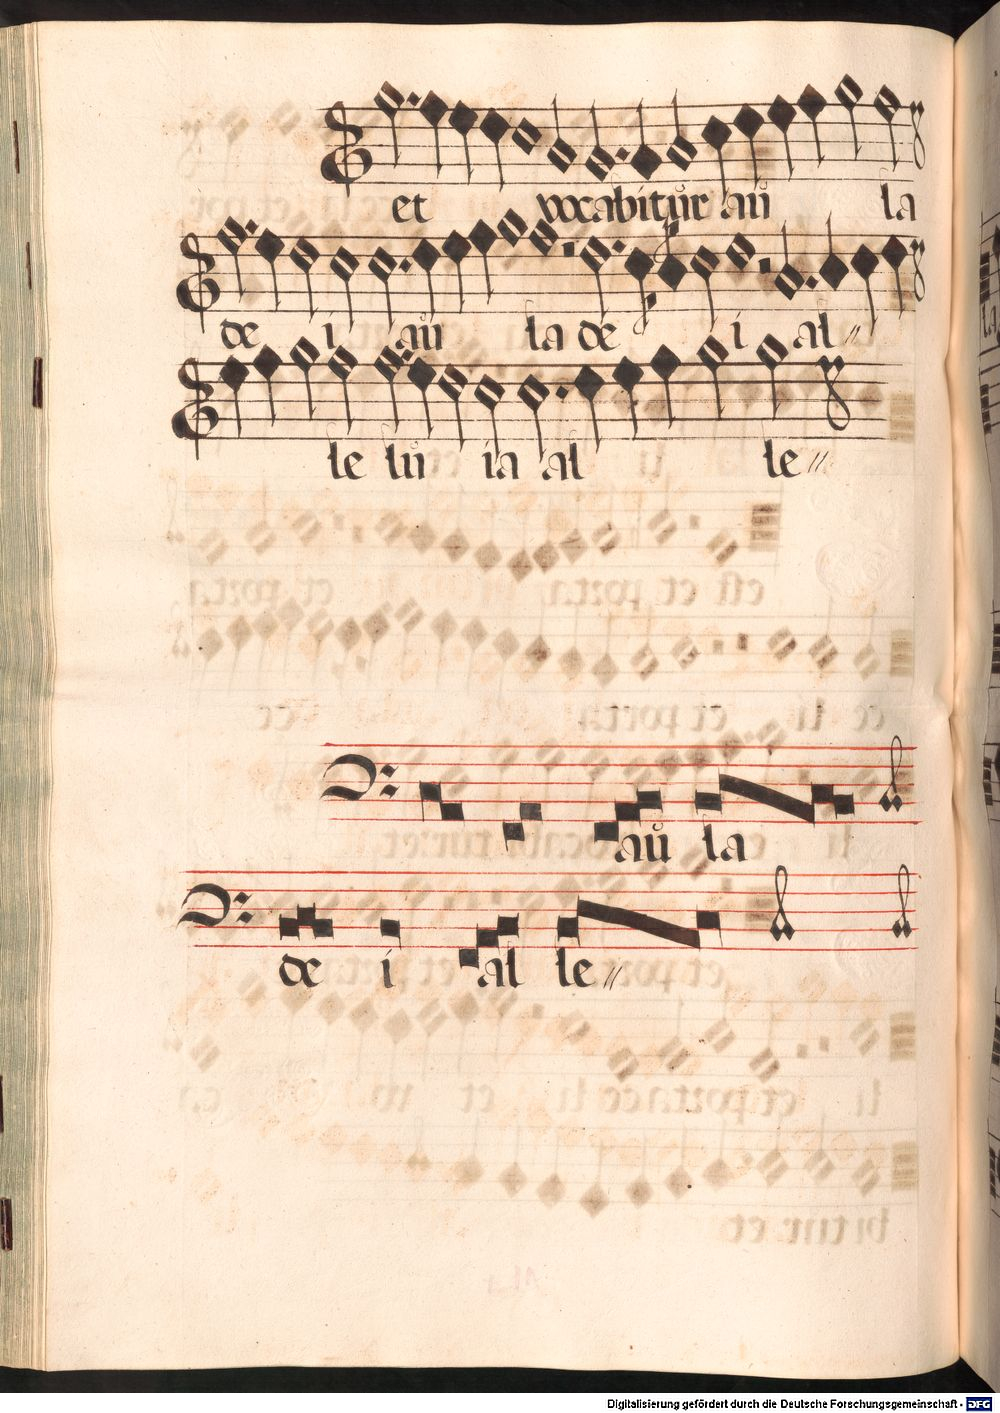 et vocabitur aŭ la
de i aŭ la de i al〃
le lŭ ia al le〃
aŭ la
de i al le〃
Digitalisierung gefördert durch die Deutsche Forschungsgemeinschaft - DFG